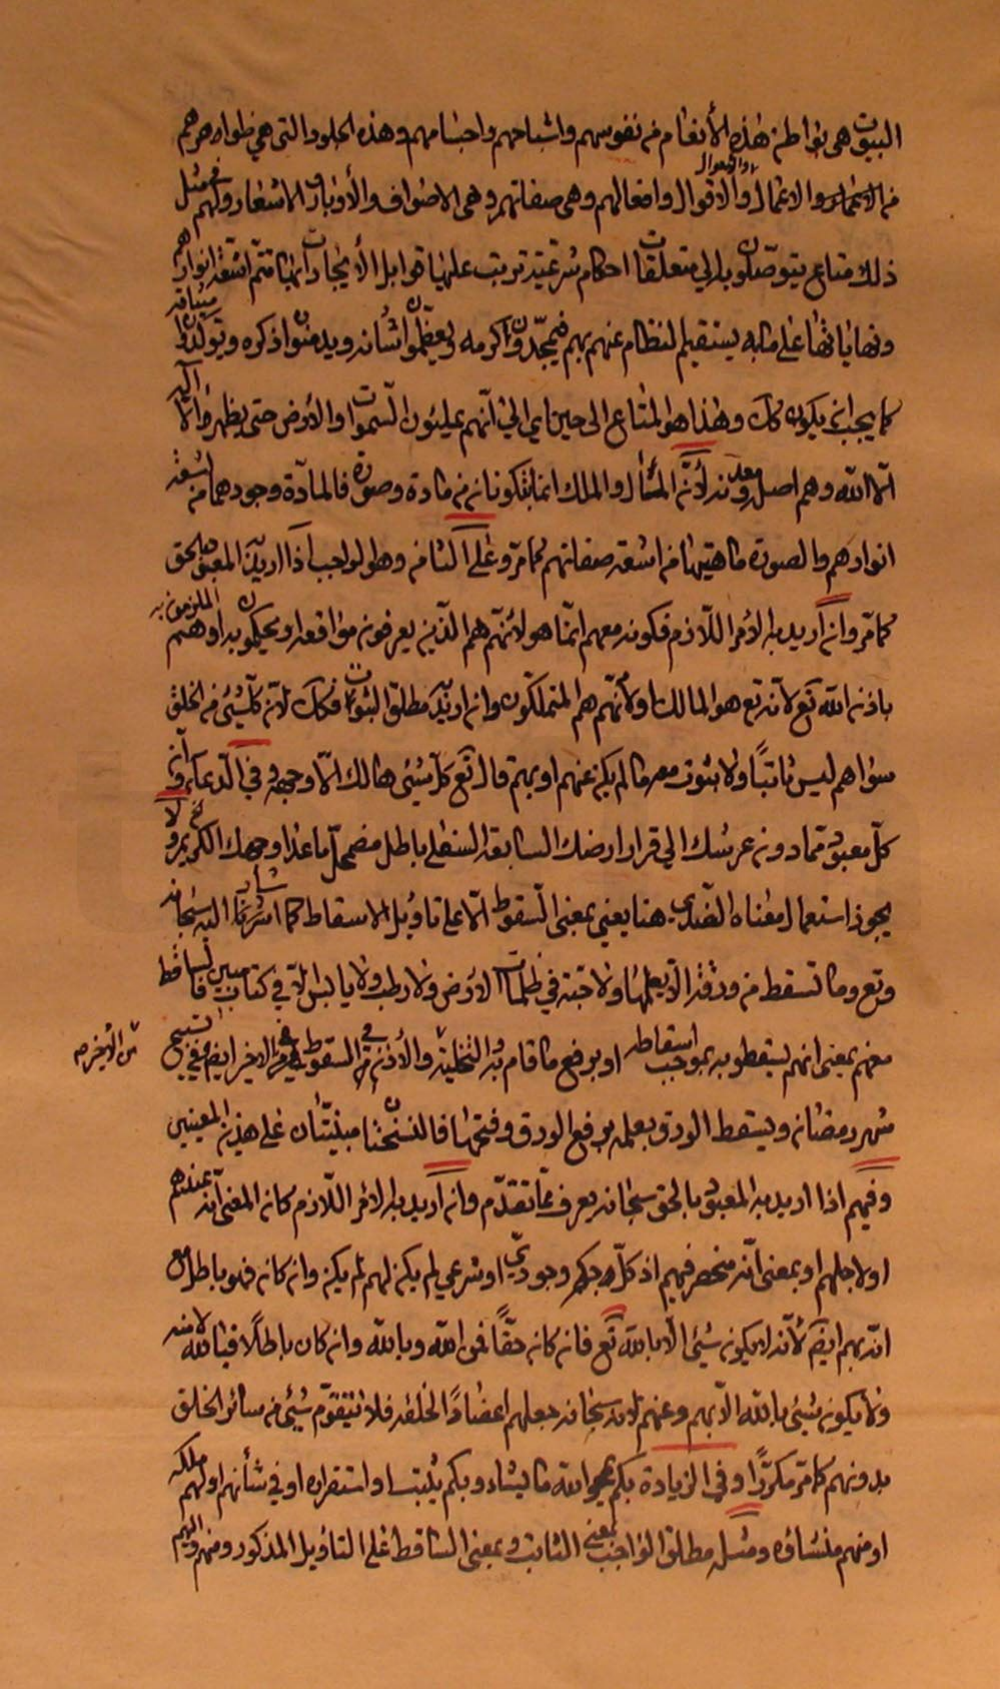 البيوت هى بواطن هذه الأنعام من نفوسهم واشباحهم واجسامهم وهذه الجلود التى هي ظواهرهم
من الاعمال والاقوال وافعالهم وهى صفاتهم وهى الاصواف والأوبار والاشعار ولهم فى مثل
والاحوال
ذلك متاع يتوصّلون به الى متعلقات احكام شرعيّة ترتب عليها قوابل الأيجادات انها تتم اشعة انوارهم
ونهاياتها على ما به يستقيم النظام عنهم بهم فيمجّدون اكرمه ويعظّمون شانه ويدمنون ذكره ويوكّدون ميثاقه
كما يجب ان يكون كك وهذا هو المتاع الى حين اي الى انّهم يملئون السّموات والأرض حتى يظهر ان لا اله
الّا الله وهم اصل ومعدنه لأنّ المثال والملك انما يتكونان من مادة وصورة فالمادّة وجودهما من اشعة
انوارهم والصورة ماهيتهما من اشعة صفاتهم كما مرّ وعلى الثانى وهو الواجب اذا اريد به المعبود بالحق
كما مرّ وان اريد به الأمر اللّازم فكونه معهم انّما هو لانّهم هم الّذين يعرفون مواقعه ويحكمون به او هم الملزمون به
باذن الله تع لانه تع هو المالك ولانّهم هم المتملّكون وان اريد به مطلق الثبوت فكك لانّ كلّ شئ من الخلق
سواهم ليس ثابتًا ولا ثبوت معه ما لم يكن عنهم او بهم قال تع كل شيئ هالك الّا وجهه وفي الدّعاء وانّ
كلّ معبود ممّا دون عرشك الى قرار ارضك السابعة السفلى باطل مضمحل ما عدا وجهك الكريم ولا
يجوز استعمال معناه الضدى هنا يعني بمعنى السقوط الّا على تاويل الاسقاط كما اشار اليه سبحانه
وتع وما تسقط من ورقة الّا يعلمها ولا حبّة في ظلمات الأرض ولا رطب ولا يابس الّا في كتاب مبين فالساقط
معهم بمعنى انهم يسقطوه بموجب اسقاطه او برفع ما قام به والتخلية والأذن فى السقوط من الاخير ايضا وفي تسبيح
من الأخر صح
شهر رمضان ويسقط الورق بعلمه برفع الورق وفتحها فالنسختان مبنيّتان على هذين المعنيين
وفيهم اذا اريد به المعبود بالحق سبحانه يعرف ممّا تقدّم وان اريد به الأمر اللّازم كان المعنى انّه عندهم
او لاجلهم او بمعنى انّه منحصر فيهم اذ كلّ حكم وجودىّ او شرعي لم يكن لهم لم يكن وان كان فهو باطل مع
انّه بهم ايضا لأنّه لا يكون شئ الّا بالله تع فان كان حقّا فمن الله وبالله وان كان باطلًا فبالله لا منه
ولا يكون شيئ بالله الّا بهم وعنهم لانه سبحانه جعلهم اعضادًا لخلقه فلا يتقوّم شئ من سائر الخلق
بدونهم كما مرّ مكرّرًا وفي الزيادة بكم يمحو الله ما يشاء وبكم يثبت او استقراره او في شأنهم او لهم ملكه
او منهم منشاؤه ومثله مطلق الواجب بمعنى الثابت وبمعنى الساقط على التاويل المذكور ومنهم واليهم